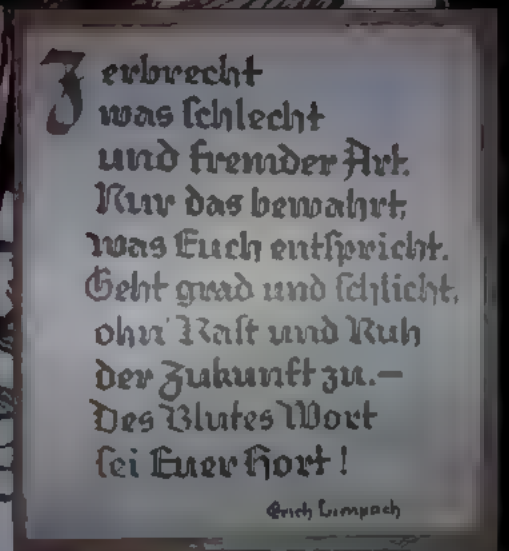 Zerbrecht
was schlecht
und fremder Art.
Nur das bewahrt,
was Euch entspricht.
Geht grad und schlicht,
ohn' Rast und Ruh
der Zukunft zu.—
Des Blutes Wort
sei Euer Hort!
Erich Limpach